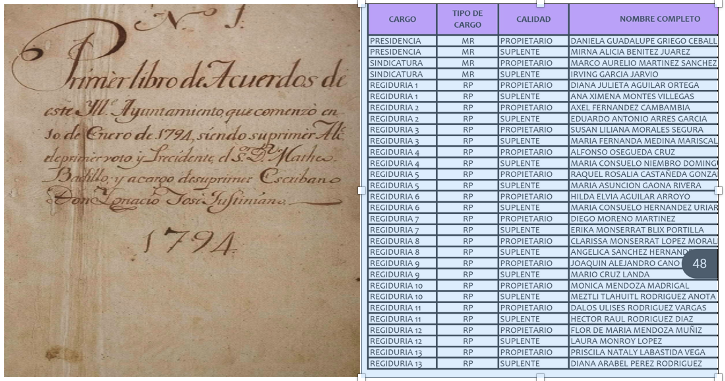 N 1.
Primer libro de Acuerdos de
este Yll.e Ayuntamiento, que comenzó en
10 de Enero de 1794, siendo su primer Alc.
de primer voto y Precidente el S.r D.n Matheo
Badillo, y a cargo de su primer Escribano
Don Ignacio José Justiniano
1794.
CARGO TIPO DE CARGO CALIDAD NOMBRE COMPLETO
PRESIDENCIA MR PROPIETARIO DANIELA GUADALUPE GRIEGO CEBALL
PRESIDENCIA MR SUPLENTE MIRNA ALICIA BENITEZ JUAREZ
SINDICATURA MR PROPIETARIO MARCO AURELIO MARTINEZ SANCHEZ
SINDICATURA MR SUPLENTE IRVING GARCIA JARVIO
REGIDURIA 1 RP PROPIETARIO DIANA JULIETA AGUILAR ORTEGA
REGIDURIA 1 RP SUPLENTE ANA XIMENA MONTES VILLEGAS
REGIDURIA 2 RP PROPIETARIO AXEL FERNANDEZ CAMBAMBIA
REGIDURIA 2 RP SUPLENTE EDUARDO ANTONIO ARRES GARCIA
REGIDURIA 3 RP PROPIETARIO SUSAN LILIANA MORALES SEGURA
REGIDURIA 3 RP SUPLENTE MARIA FERNANDA MEDINA MARISCAL
REGIDURIA 4 RP PROPIETARIO ALFONSO OSEGUEDA CRUZ
REGIDURIA 4 RP SUPLENTE MARIA CONSUELO NIEMBRO DOMING
REGIDURIA 5 RP PROPIETARIO RAQUEL ROSALIA CASTAÑEDA GONZA
REGIDURIA 5 RP SUPLENTE MARIA ASUNCION GAONA RIVERA
REGIDURIA 6 RP PROPIETARIO HILDA ELVIA AGUILAR ARROYO
REGIDURIA 6 RP SUPLENTE MARIA CONSUELO HERNANDEZ URIAR
REGIDURIA 7 RP PROPIETARIO DIEGO MORENO MARTINEZ
REGIDURIA 7 RP SUPLENTE ERIKA MONSERRAT BLIX PORTILLA
REGIDURIA 8 RP PROPIETARIO CLARISSA MONSERRAT LOPEZ MORAL
REGIDURIA 8 RP SUPLENTE ANGELICA SANCHEZ HERNAND
REGIDURIA 9 RP PROPIETARIO JOAQUIN ALEJANDRO CANO
48
REGIDURIA 9 RP SUPLENTE MARIO CRUZ LANDA
REGIDURIA 10 RP PROPIETARIO MONICA MENDOZA MADRIGAL
REGIDURIA 10 RP SUPLENTE MEZTLI TLAHUITL RODRIGUEZ ANOTA
REGIDURIA 11 RP PROPIETARIO DALOS ULISES RODRIGUEZ VARGAS
REGIDURIA 11 RP SUPLENTE HECTOR RAUL RODRIGUEZ DIAZ
REGIDURIA 12 RP PROPIETARIO FLOR DE MARIA MENDOZA MUÑIZ
REGIDURIA 12 RP SUPLENTE LAURA MONROY LOPEZ
REGIDURIA 13 RP PROPIETARIO PRISCILA NATALY LABASTIDA VEGA
REGIDURIA 13 RP SUPLENTE DIANA ARABEL PEREZ RODRIGUEZ